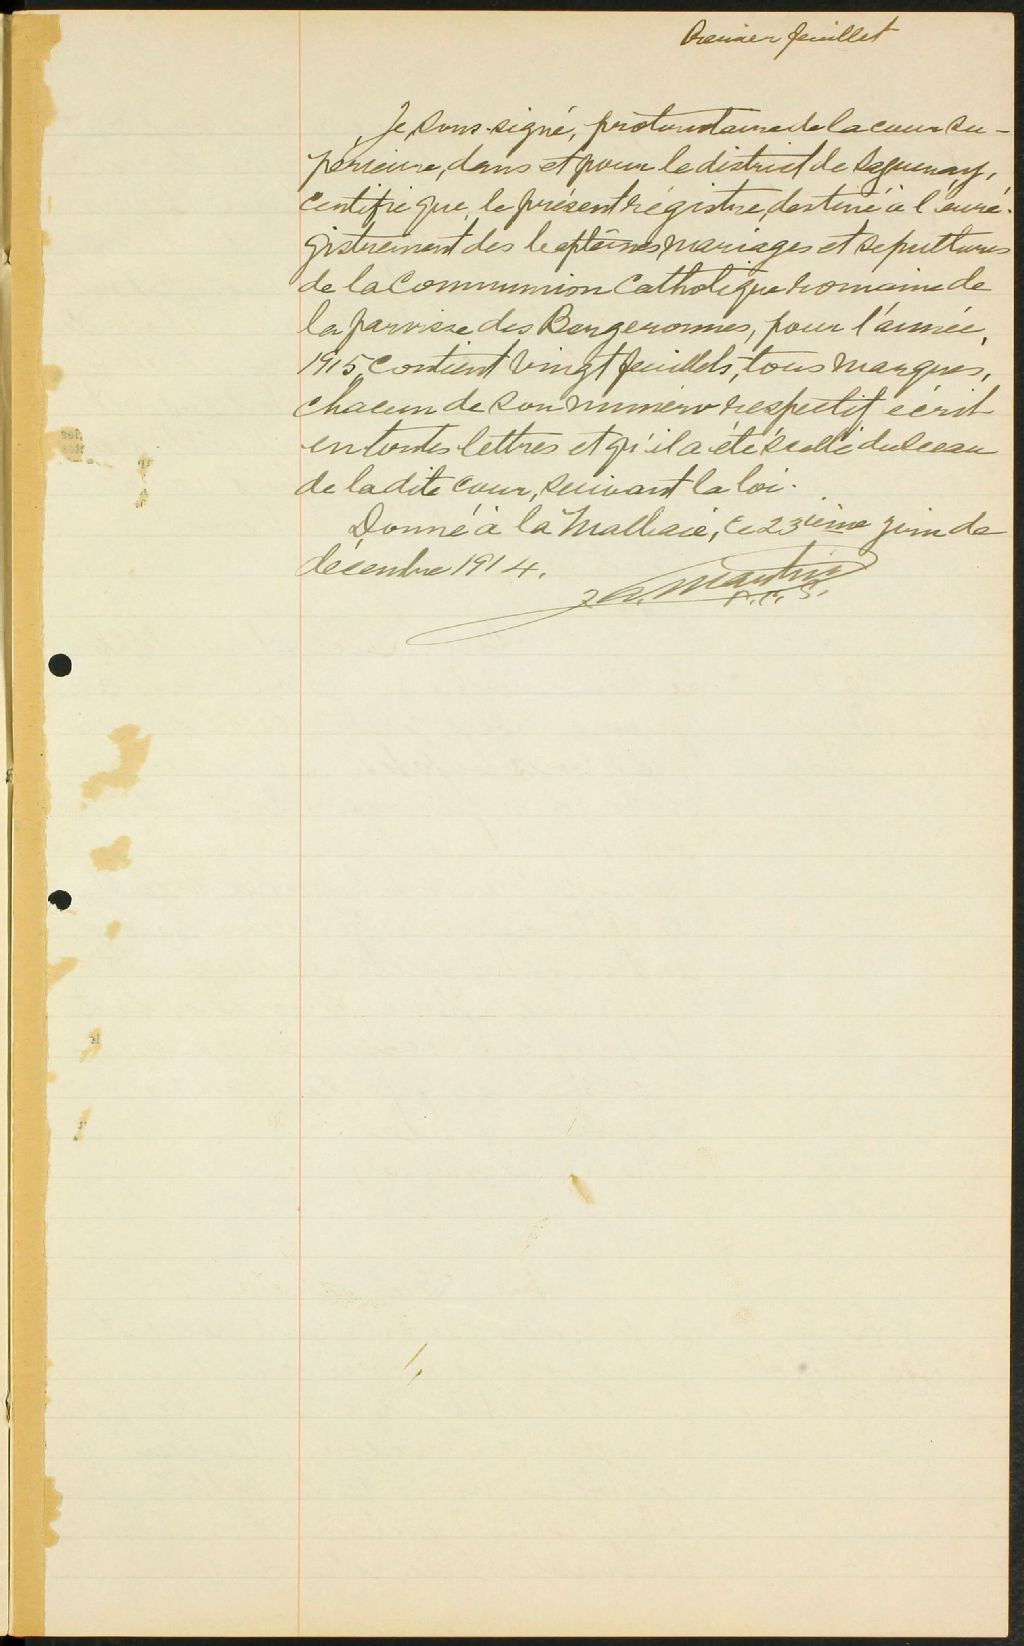 Premier feuillet
Je, sous-signé, protonotaire de la cour su-
périeure, dans et pour le district de Saguenay,
certifie que, le présent régistre, destiné à l'enré-
gistrement des baptêmes mariages et sépultures
de la Communion Catholique romaine de
la paroisse des Bergeronnes, pour l'année,
1915, contient vingt feuillets, tous marqués,
chacun de son numéro respectif écrit
en toutes lettres et qu'il a été scellé du sceau
de la dite cour, suivant la loi.
Donné à la Malbaie, ce 23ième jour de
décembre 1914.
Martin
P.C.S.